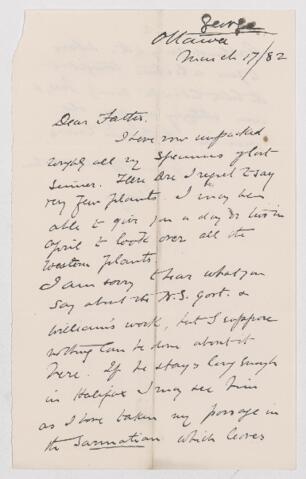 George
Ottawa
March 17/82
Dear Father,
I have now unpacked
roughly all my specimens of last
Summer. There are I regret to say
very few plants. I may be
able to give you a day or two in
April to look over all the
Western plants.
I am sorry to hear what you
say about the N.S. Govt. &
William's work, but I suppose
nothing can be done about it
here. If he stays long enough
in Halifax I may see him
as I have taken my passage in
the Sarmatian which leaves